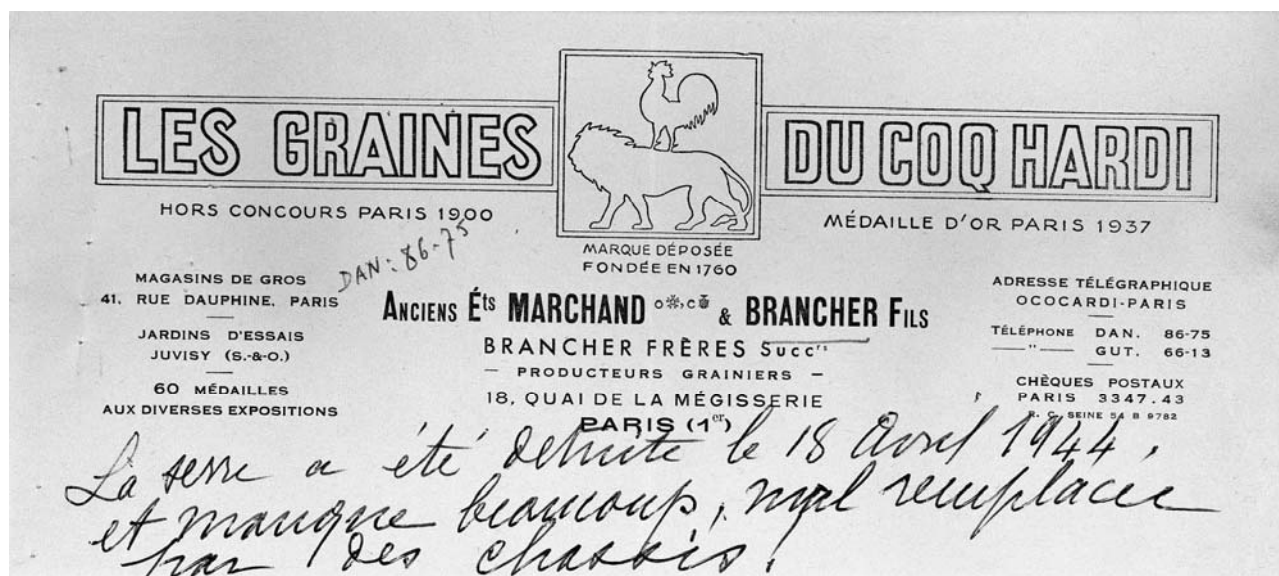 LES GRAINES DU COQ HARDI
HORS CONCOURS PARIS 1900
MÉDAILLE D'OR PARIS 1937
MARQUE DÉPOSÉE
FONDÉE EN 1760
DAN: 86-75
MAGASINS DE GROS
41. RUE DAUPHINE, PARIS
JARDINS D'ESSAIS
JUVISY (S.-&-O.)
60 MÉDAILLES
AUX DIVERSES EXPOSITIONS
ANCIENS Éts MARCHAND & BRANCHER FILS
BRANCHER FRÈRES Succrs
— PRODUCTEURS GRAINIERS —
18, QUAI DE LA MÉGISSERIE
PARIS (1er)
ADRESSE TÉLÉGRAPHIQUE
OCOCARDI-PARIS
TÉLÉPHONE DAN. 86-75
—"— GUT. 66-13
CHÈQUES POSTAUX
PARIS 3347.43
R. C. SEINE 54 B 9782
La serre a été détruite le 18 Avril 1944,
et manque beaucoup, mal remplacée
par des chassis.